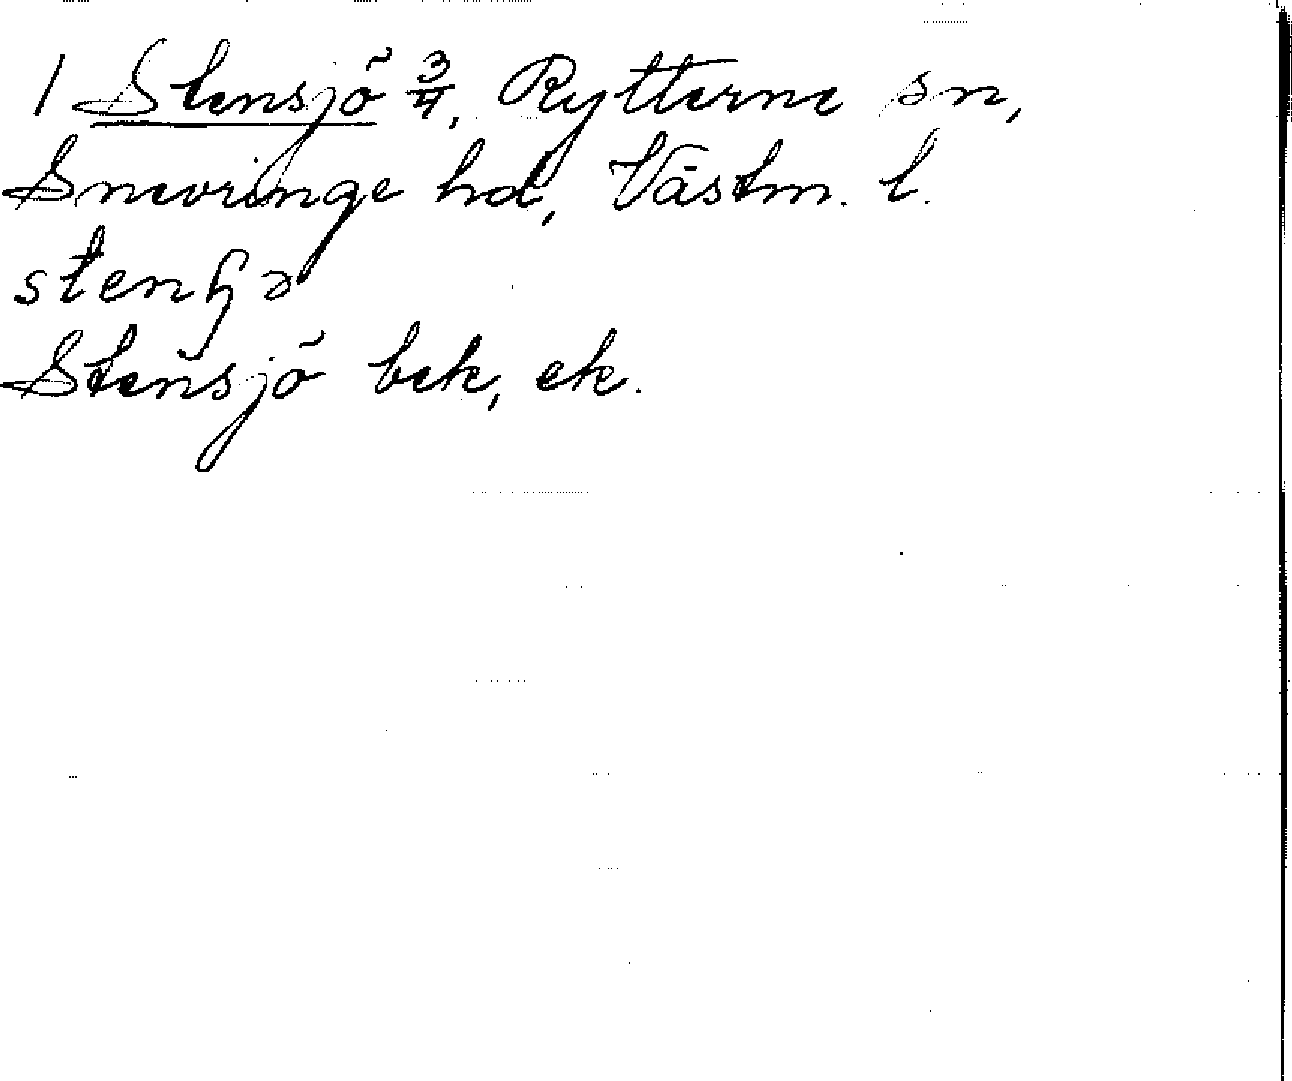 1 Stensjö 3/4, Rytterne sn,
Snevringe hd, Västm. l.
stenɧə
Stensjö bek, ek.